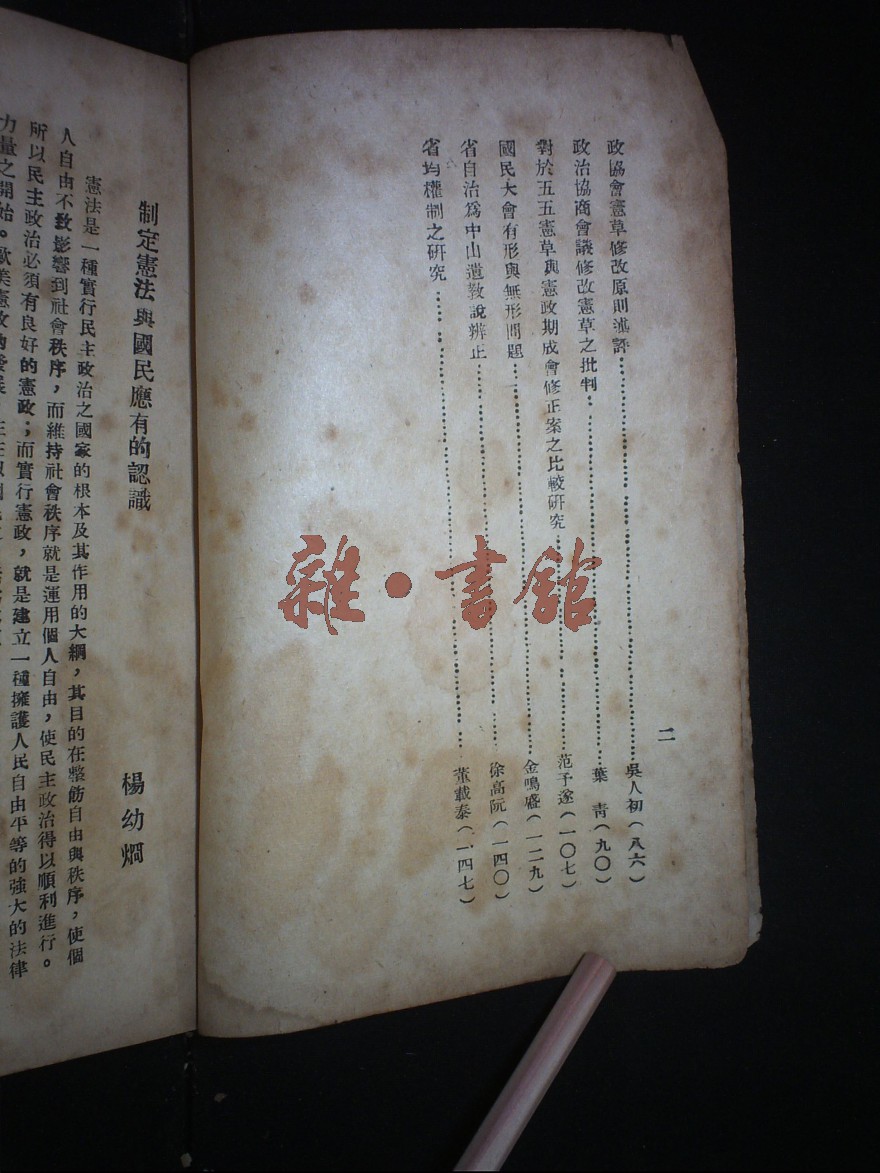 二
政協會憲草修改原則述評……吳人初(八六)
政治協商會議修改憲草之批判……葉 青(九〇)
對於五五憲草與憲政期成會修正案之比較研究……范予遂(一〇七)
國民大會有形與無形問題……金鳴盛(一二九)
省自治爲中山遺教說辨正……徐高阮(一四〇)
省均權制之研究……董載泰(一四七)
制定憲法與國民應有的認識
楊幼炯
憲法是一種實行民主政治之國家的根本及其作用的大綱,其目的在整飭自由與秩序,使個
人自由不致影響到社會秩序,而維持社會秩序就是運用個人自由,使民主政治得以順利進行。
所以民主政治必須有良好的憲政;而實行憲政,就是建立一種擁護人民自由平等的強大的法律
力量之開始。歐美憲政的發展
雜·書館